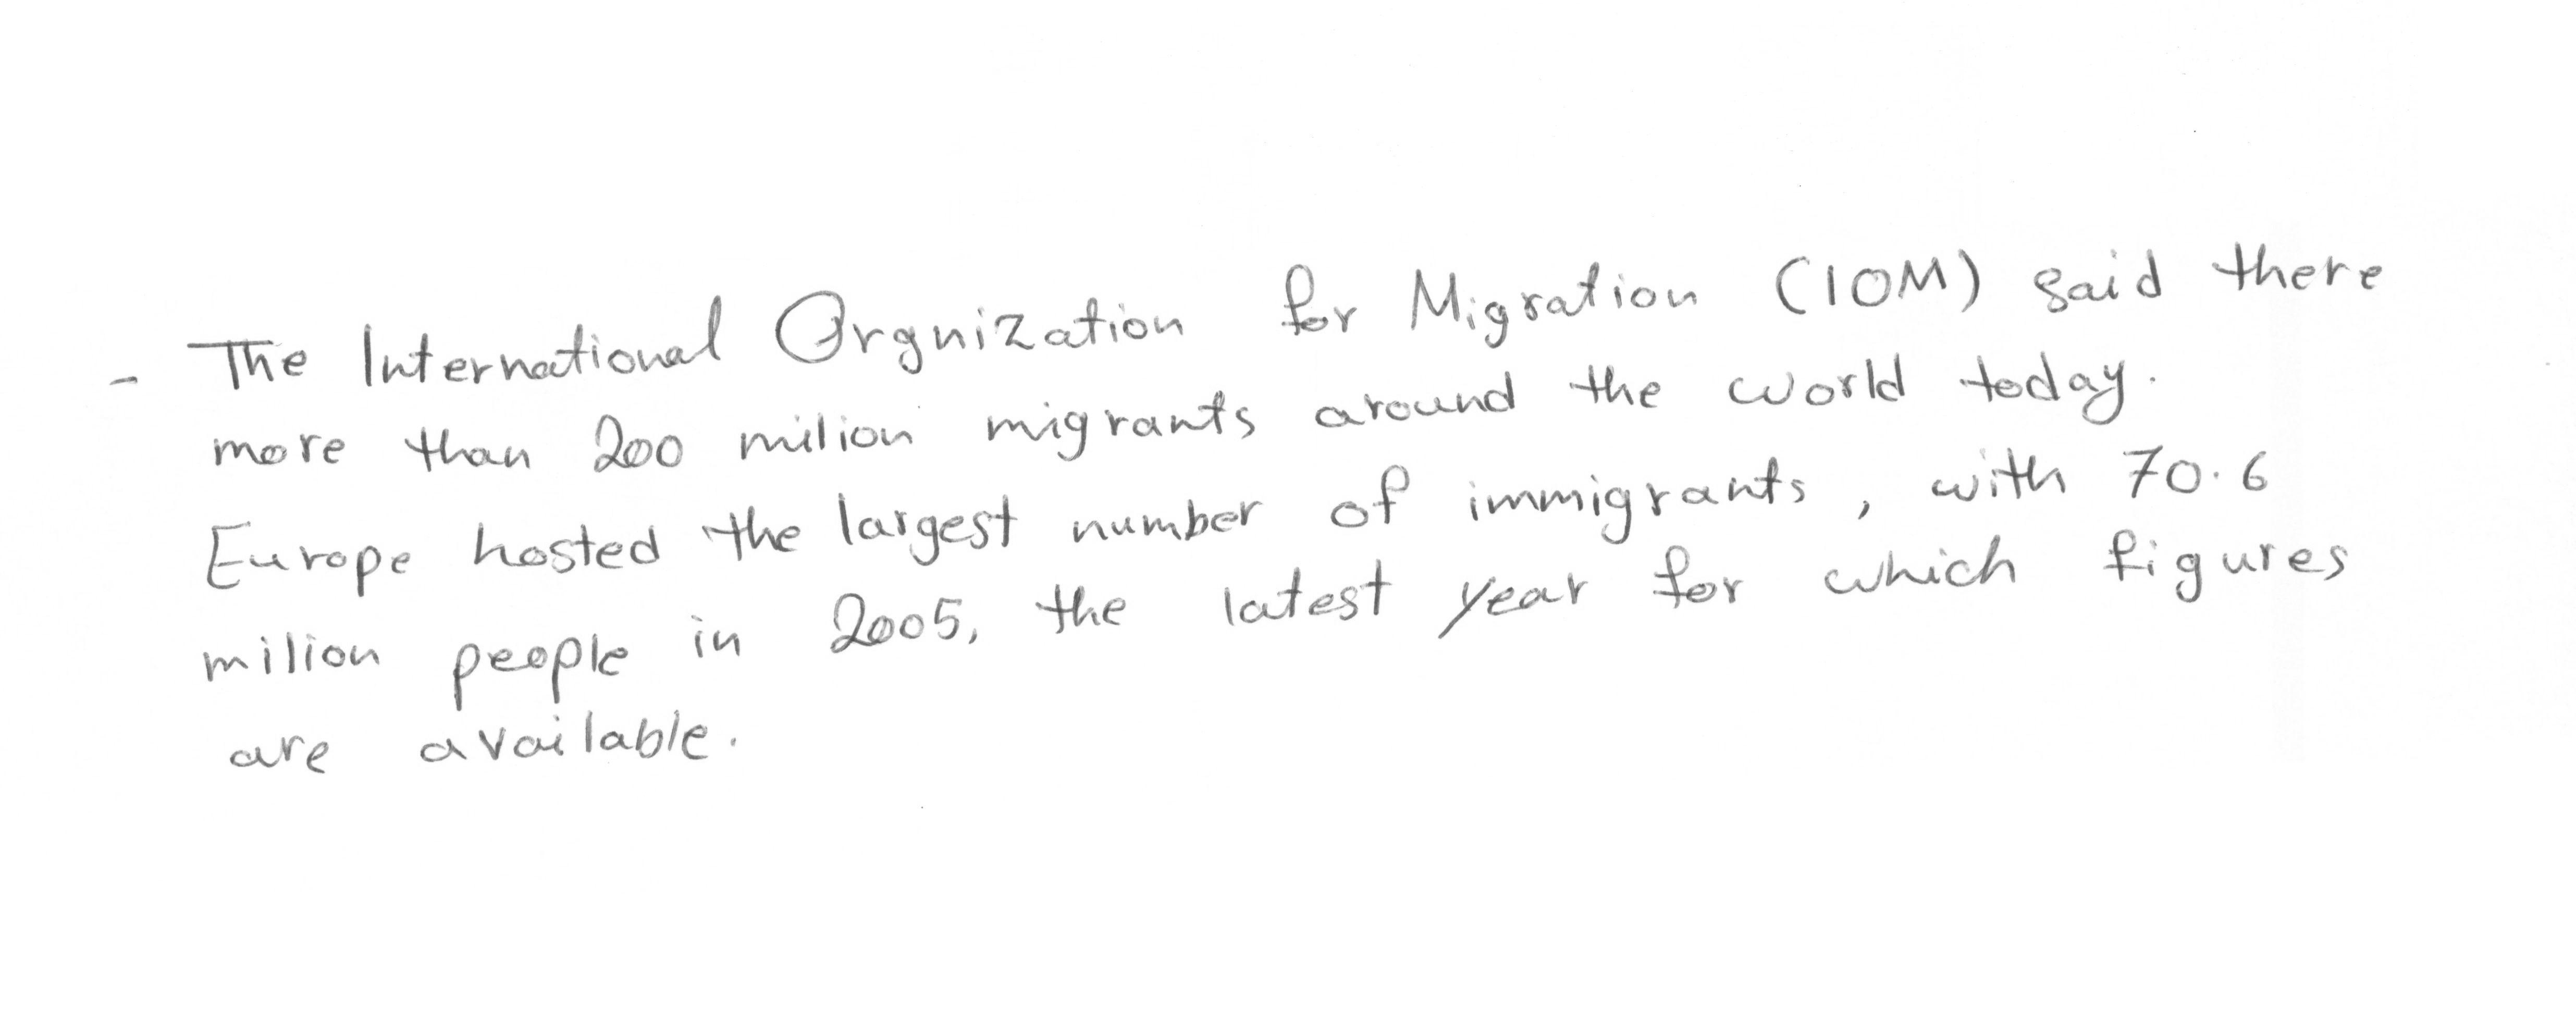 - The International Orgnization for Migration (IOM) said there
more than 200 milion migrants around the world today.
Europe hosted the largest number of immigrants, with 70.6
milion people in 2005, the latest year for which figures
are available.